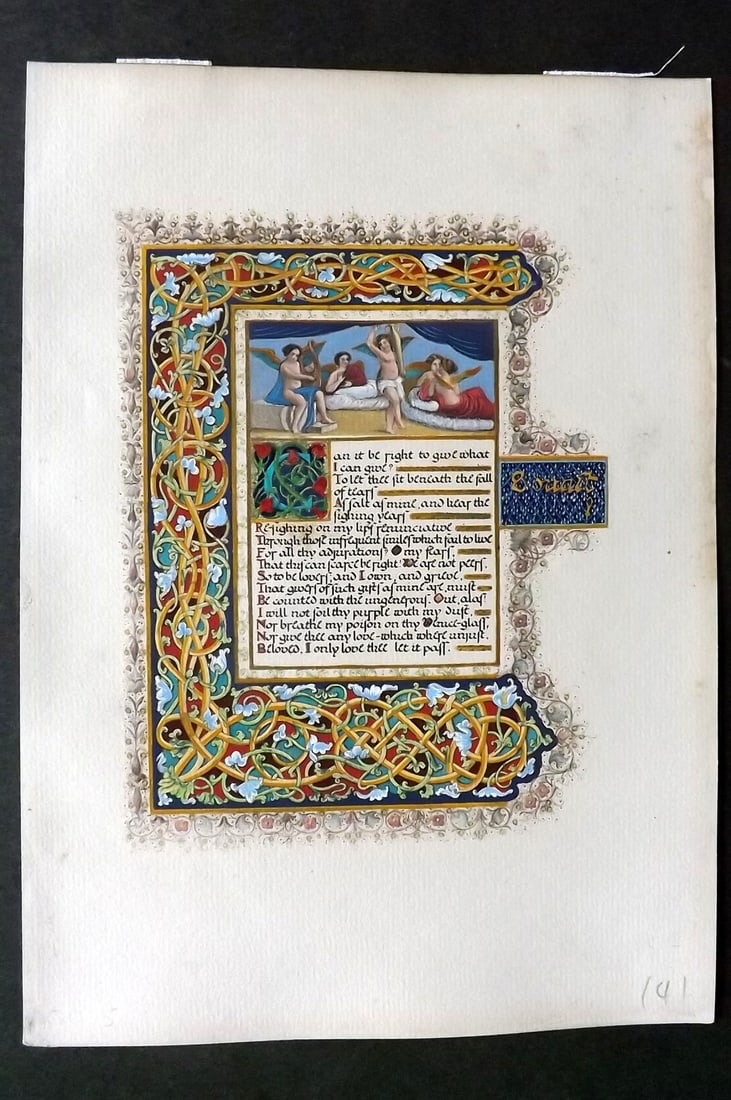 Can it be right to give what
I can give?
To let thee sit beneath the fall
of tears
As salt as mine, and hear the
sighing years
Re-sighing on my lips renunciative
Through those infrequent smiles which fail to live
For all thy adjurations? O my fears,
That this can scarce be right! We are not peers,
So to be lovers; and I own, and grieve,
That givers of such gifts as mine are, must
Be counted with the ungenerous. Out, alas!
I will not soil thy purple with my dust,
Nor breathe my poison on thy Venice-glass,
Nor give thee any love—which where unjust.
Beloved, I only love thee let it pass.
141